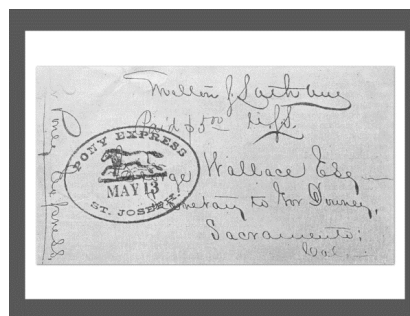 Milton S. Latham
Paid $5.00
PONY EXPRESS
MAY 13
ST. JOSEPH.
George Wallace Esq
Secretary to Gov Downey,
Sacramento;
Cal
Pony Express